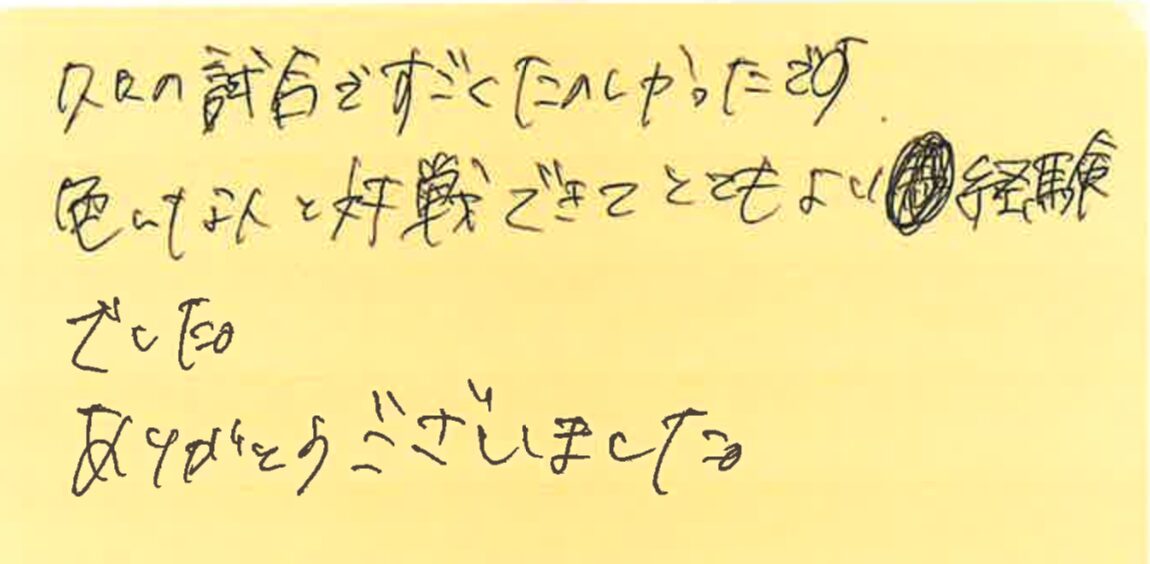 久々の試合ですごくたのしかったです.
色んな人と対戦できてとてもよい経験
でした。
ありがとうございしました。